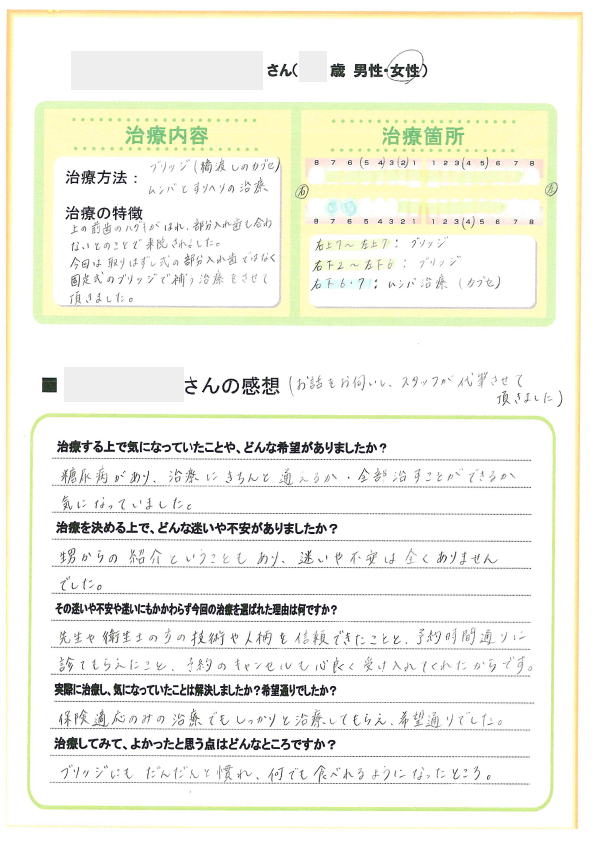 さん( 歳 男性・女性)
治療内容
治療方法: ブリッジ(橋渡しのカブセ)
ムシバとすりヘリの治療
治療の特徴
上の前歯のハグキがはれ、部分入れ歯も合わ
ないとのことで来院されました。
今回は取りはずし式の部分入れ歯ではなく
固定式のブリッジで補う治療をさせて
頂きました。
治療箇所
8 7 6 (5 4)(3 2) 1 1 2 3 (4 5) 6 7 8
右 左
8 7 6 5 4 3 2 1 1 2 3 (4) 5 6 7 8
右上7〜左上7: ブリッジ
右下2〜左下6: ブリッジ
右下6・7: ムシバ治療(カブセ)
■ さんの感想 (お話をお伺いし、スタッフが代筆させて
頂きました)
治療する上で気になっていたことや、どんな希望がありましたか?
糖尿病があり、治療にきちんと通えるか・全部治すことができるか
気になっていました。
治療を決める上で、どんな迷いや不安がありましたか?
甥からの紹介ということもあり、迷いや不安は全くありません
でした。
その迷いや不安や迷いにもかかわらず今回の治療を選ばれた理由は何ですか?
先生や衛生士の方の技術や人柄を信頼できたことと、予約時間通りに
診てもらえたこと、予約のキャンセルも心良く受け入れてくれたからです。
実際に治療し、気になっていたことは解決しましたか?希望通りでしたか?
保険適応のみの治療でもしっかりと治療してもらえ、希望通りでした。
治療してみて、よかったと思う点はどんなところですか?
ブリッジにもだんだんと慣れ、何でも食べれるようになったところ。